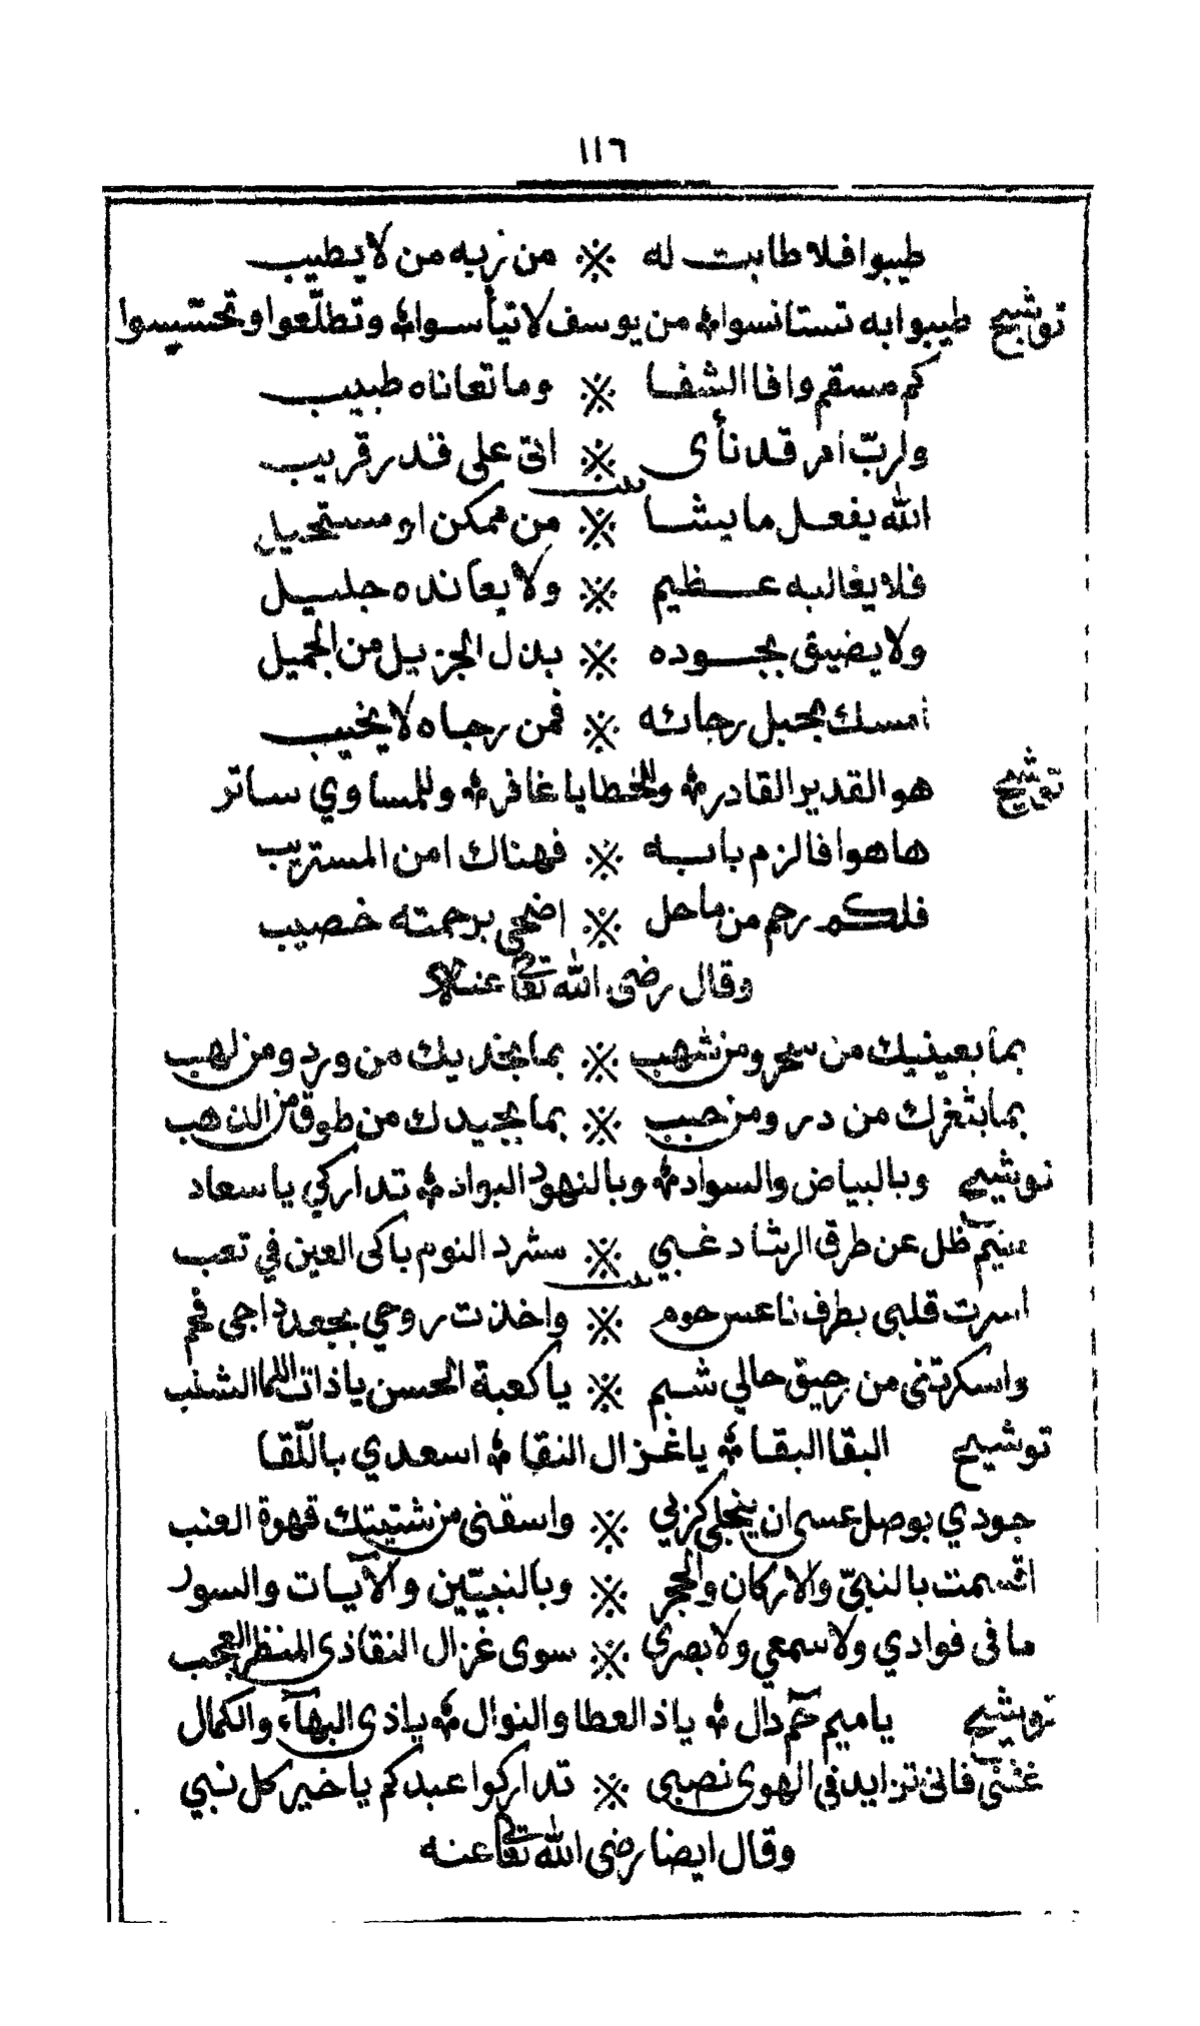 ١١٦
طيبوا فلا طابت له ※ من زيه من لا يطيب
توشيح طيبوا به تستانسوا ۞ من يوسف لا تيأسوا ۞ وتطلّعوا وتحسّسوا
كم مسقم وافا الشفا ※ وما تعاناه طبيب
ولربّ امر قد نأى ※ اتى على قدر قريب
الله يفعل ما يشا ※ من ممكن او مستحيل
فلا يغالبه عظيم ※ ولا يعانده جليل
ولا يضيق بجوده ※ بذل الجزيل من الجميل
امسك بحبل رجائه ※ فمن رجاه لا يخيب
توشيح هو القدير القادر ۞ وللخطايا غافر ۞ وللمساوي ساتر
ها هوا فالزم بابه ※ فهناك امن المستريب
فلكم رحم من ماحل ※ اضحى برحمته خصيب
وقال رضى الله تعالى عنه
بما بعينيك من سحر ومن شهب ※ بما بخديك من ورد ومن لهب
بما بثغرك من در ومن حبب ※ بما بجيدك من طوق من الذهب
توشيح وبالبياض والسواد ۞ وبالنهود البواد ۞ تداركي يا سعاد
متيم ظل عن طرق الرشاد غبي ※ مشرد النوم باكى العين في تعب
اسرت قلبى بطرف ناعس حوم ※ واخذت روحي بجعد داجى فحم
واسكرتنى من رحيق حالي شبم ※ يا كعبة الحسن يا ذات اللما الشنب
توشيح البقا البقا ۞ يا غزال النقا ۞ اسعدي باللّقا
جودي بوصل عسى ان ينجلى كربي ※ واسقنى من شتيتك قهوة العنب
اقسمت بالنبيّ والاركان والحجر ※ وبالنبيّين والآيات والسور
ما فى فوادي ولا سمعي ولا بصري ※ سوى غزال النقا ذى المنظر العجب
توشيح يا ميم حم دال ۞ يا ذا العطا والنوال ۞ يا ذى البهآء والكمال
غثنى فانى تزايد في الهوى نصبى ※ تداركوا عبدكم يا خير كل نبي
وقال ايضا رضى الله تعالى عنه